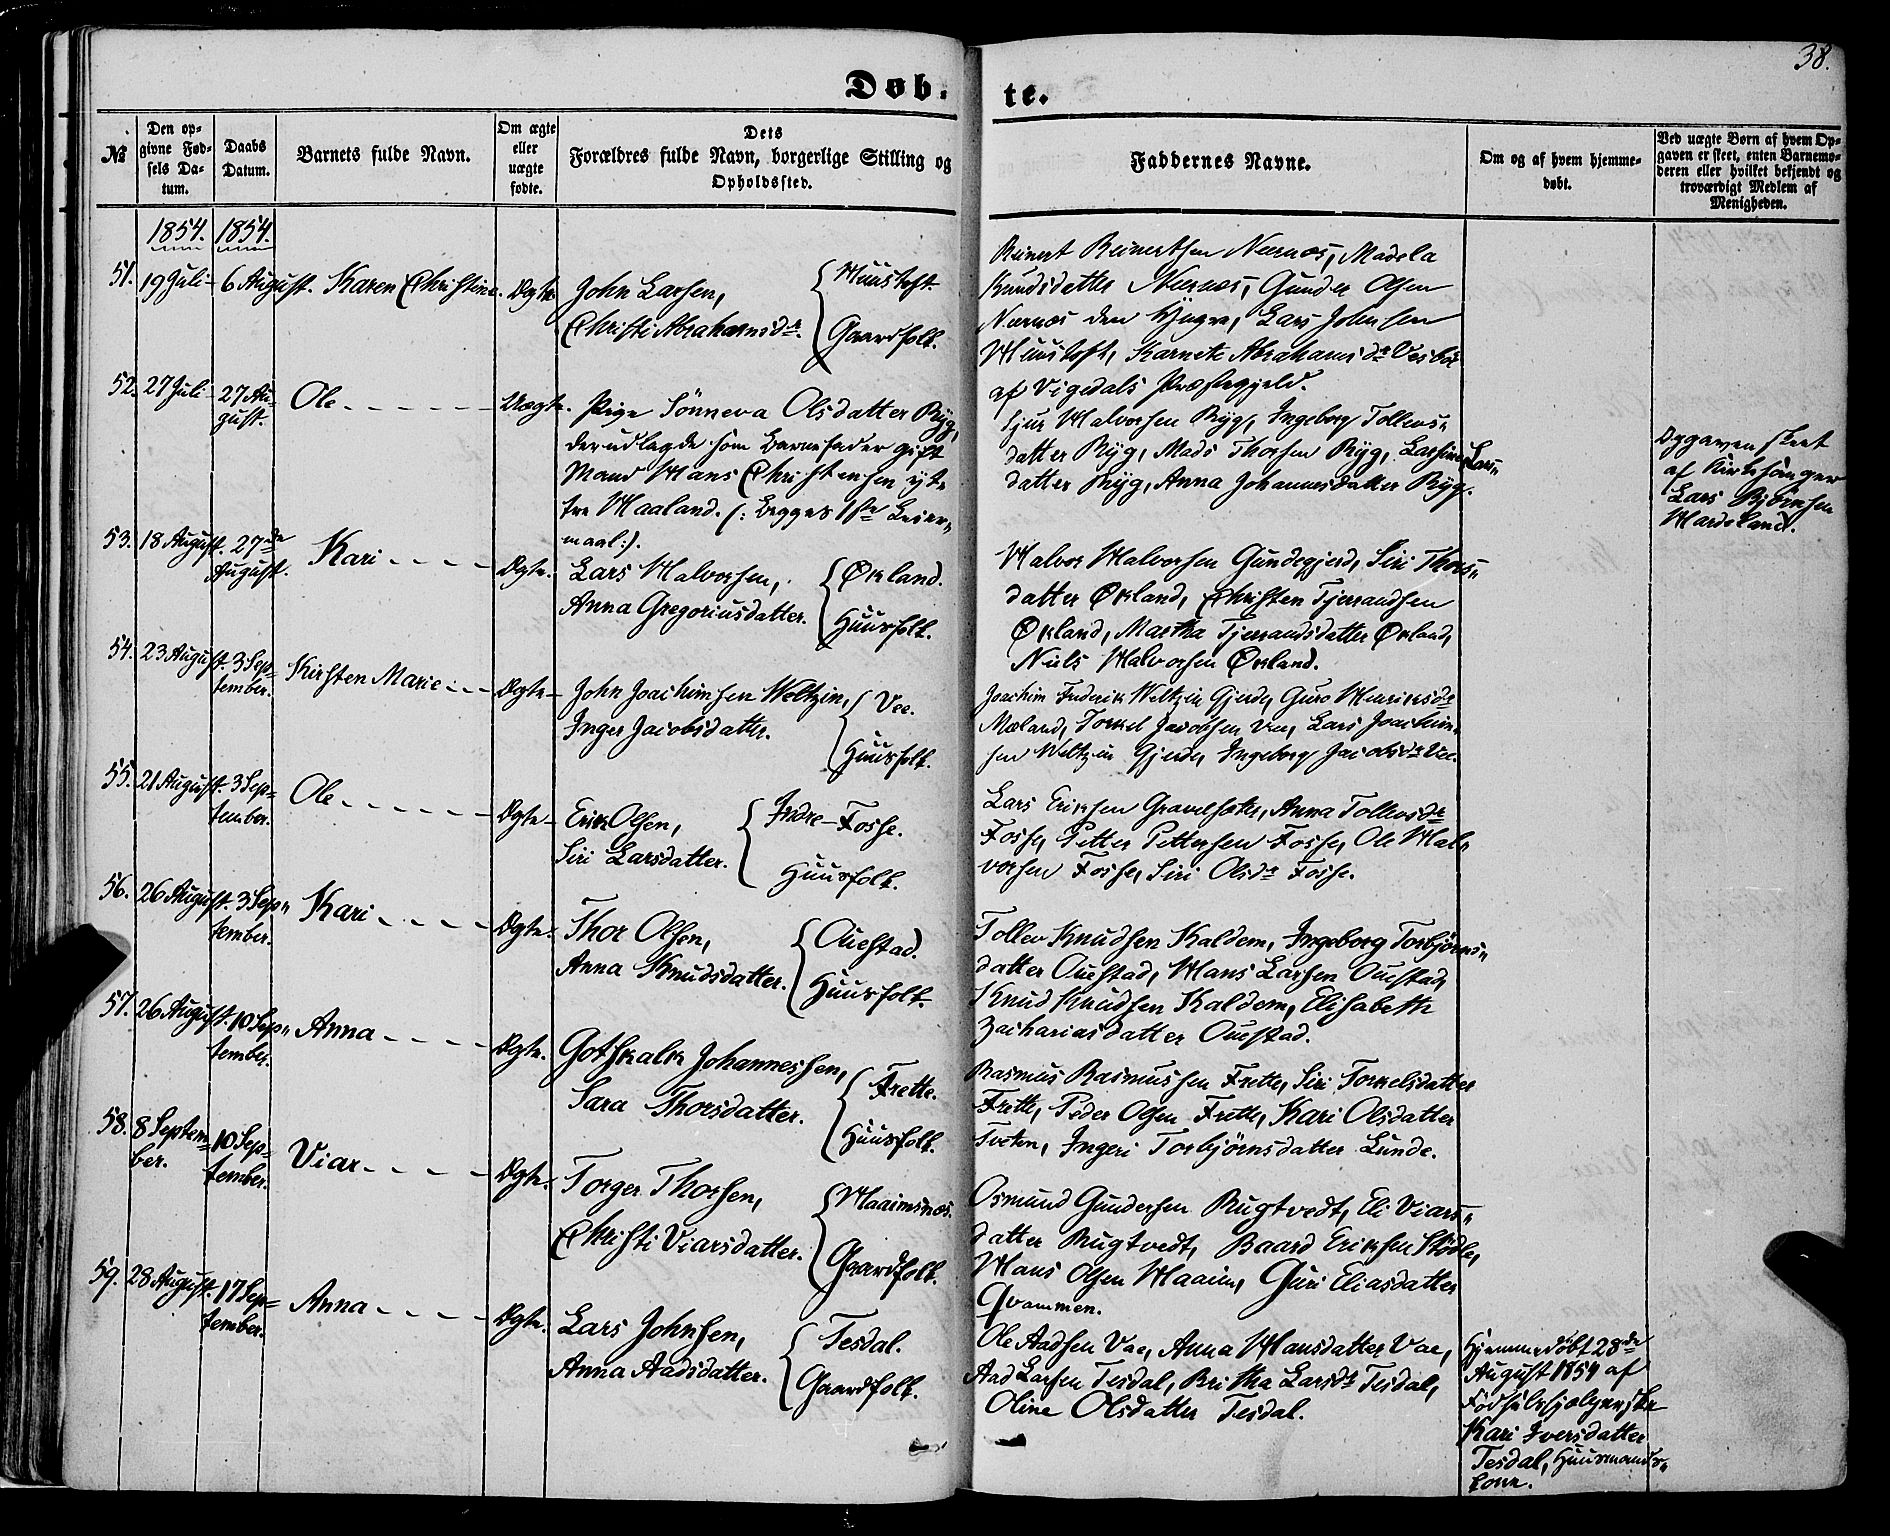 38.
Døb-
te.
№
Den op-
givne Fød-
sels Da-
tum.
Daabs
Datum.
Barnets fulde Navn.
Om ægte
eller
uægte
fødte.
Dets
Forældres fulde Navn, borgerlige Stilling og
Opholdssted.
Faddernes Navne.
Om og af hvem hjemme-
døbt.
Ved uægte Børn af hvem Op-
gaven er skeet, enten Barnemo-
deren eller hvilket bekjendt og
troværdigt Medlem af
Menigheden.
1854. 1854.
51. 19 Juli- 6 August. Karen Christine. Ægte
John Larsen,
Christi Abrahamsdr.
Gaardfolk.
Reinert Reinertsen Nærnæs, Madela
Knudsdatter Nærnæs, Gunder Olsen
Nærnæs den Yngre, Lars Johnsen
Abrahamsdr
af Vigedals Præstegjeld.
52. 27 Juli- 27 Au-
gust.
Ole - - - - - Uægte.
Pige Sønneva Olsdatter Ryg,
der udlagde som Barnefader gift
Mand Hans Christensen yt-
tre Haaland. (: Begges 1ste Leier-
maal:).
Sjur Halvorsen Ryg, Ingeborg Tollevs-
datter Ryg, Mads Thorsen Ryg, Lars-
datter Ryg, Anna Johannesdatter Ryg.
Opgaven skeet
af Kirkesanger
Lars
53. 18 August. 27de
August.
Kari - - - - Ægte.
Lars Halvorsen,
Anna Gregoriusdatter.
Økland.
Huusfolk.
Halvor Halvorsen Gundegjerd, Siri Thors-
datter Økland, Christen Tjerrandsen
Økland, Martha Tjerrandsdatter Økland,
Niels Halvorsen Økland.
54. 23 August. 3 Sep-
tember.
Kirsten Marie - - - Ægte-
John Joachimsen Weltzin,
Inger Jacobsdatter.
Vee.
Huusfolk.
Joachim Frederik Weltzin Gjerde, Guro Henriksdr
Mæland, Torkel Jacobsen Vee, Lars Joachim-
sen Weltzin Gjerde, Ingeborg Jacobsdr Vee.
55. 21 August. 3 Sep-
tember.
Ole - - - - - Ægte-
Erik Olsen,
Siri Larsdatter.
Indre-Fosse.
Huusfolk.
Lars Eriksen Anna Tollevsdr
Fosse, Petter Pettersen Fosse, Ole Hal-
vorsen Fosse, Siri Olsdr Fosse.
56. 26 August. 3 Sep-
tember.
Kari - - - - Ægte.
Thor Olsen,
Anna Knudsdatter.
Ouestad.
Huusfolk.
Tollev Knudsen Kaldem, Ingeborg Torbjørns-
datter Ouestad, Hans Larsen Ouestad,
Knud Knudsen Kaldem, Elisabeth
Zachariasdatter Ouestad.
57. 26 August. 10 Sep-
tember.
Anna - - - - Ægte.
Gotskalk Johannessen,
Sara Thorsdatter.
Frette.
Huusfolk.
Rasmus Rasmussen Frette, Siri Torkelsdatter
Frette, Peder Olsen Frette, Kari Olsdatter
Tveten, Ingeri Torbjørnsdatter Lunde.
58. 8 Septem-
ber.
10 Sep-
tember.
Viar - - - - Ægte.
Torger Thorsen,
Christi Viarsdatter.
Haaimsnæs.
Gaardfolk.
Osmund Gundersen Rugtvedt, Eli Viars-
datter Rugtvedt, Baard Eriksen Stødle,
Hans Olsen Haaim, Guri Eliasdatter
Qvammen.
59. 28 August. 17 Sep-
tember.
Anna - - - - Ægte.
Lars Johnsen,
Anna Aadsdatter.
Tesdal.
Gaardfolk.
Ole Aadsen Vae, Anna Hansdatter Vae,
Aad Larsen Tesdal, Britha Larsdr Tesdal,
Oline Olsdatter Tesdal.
Hjemmedøbt 28de
August 1854 af
Fødselshjælperske
Kari Iversdatter
Tesdal, Huusmands-
kone.